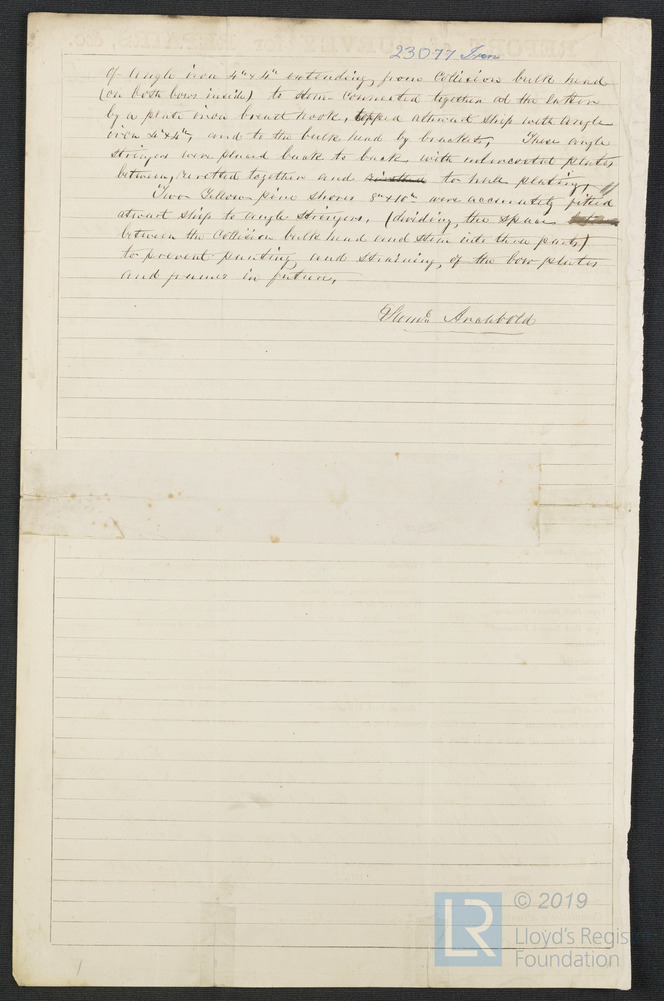 23077 Iron
of angle iron 4"x4" extending, from Collision bulk head
(on both bows inside) to stem - connected together at the latter
by a plate iron breast hook, topped athwart ship with angle
iron 4"x4", and to the bulk head by brackets, These angle
stringers were placed back to back with intercostal plates
between, rivetted together and to hull plating,
Two Yellow pine shores 8"x10" were accurately fitted
athwart ship to angle stringers, (dividing, the space
between the Collision bulk head and stem into three parts)
to prevent panting, and straining, of the bow plates
and frames in future,
Archbold
© 2019
LR
Lloyd's Register
Foundation